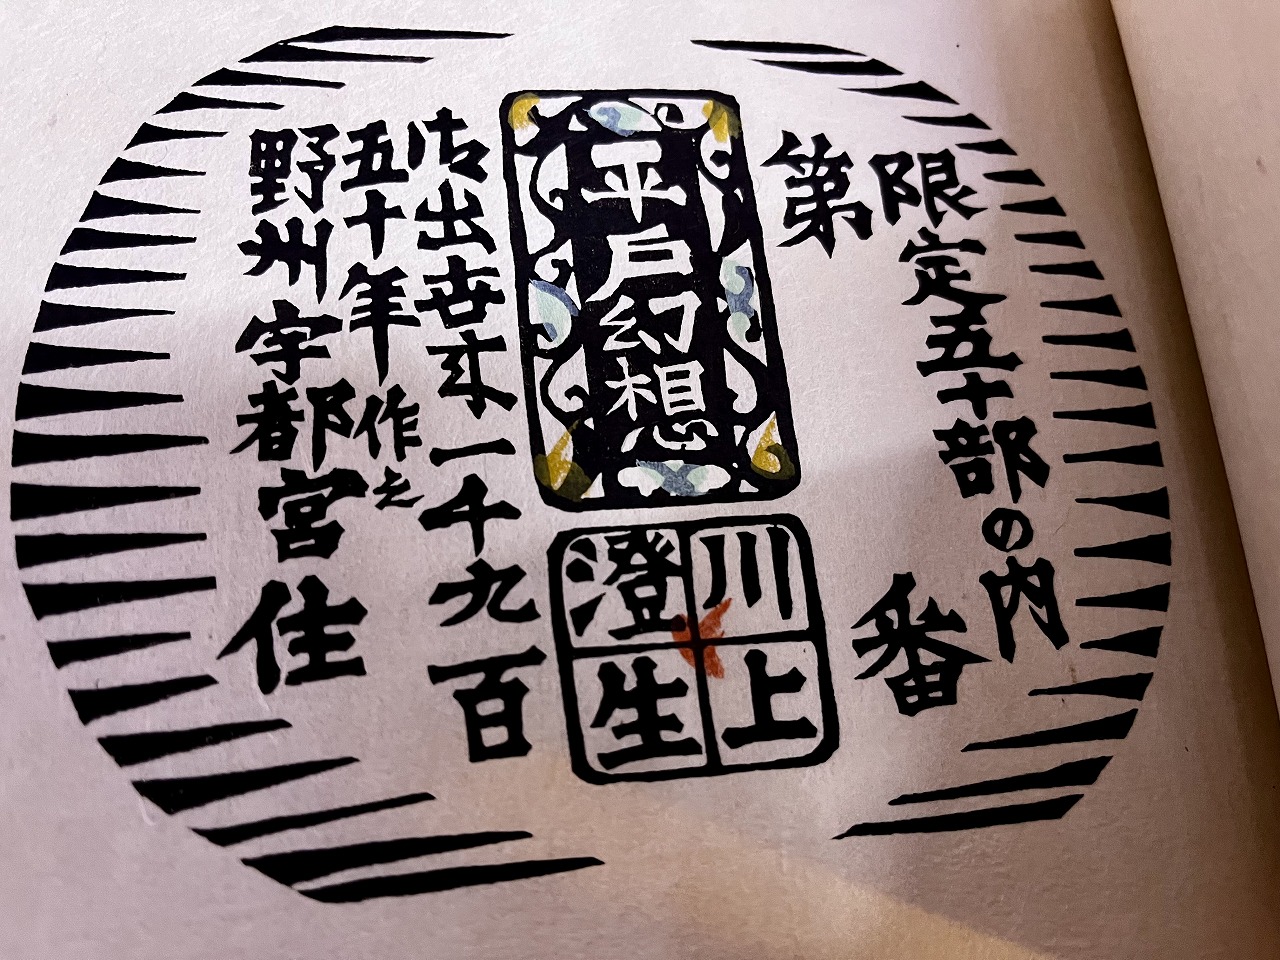 限定五十部の内
第 番
平戸幻想
川上
澄生
出世来一千九百
五十年作之
野州宇都宮住